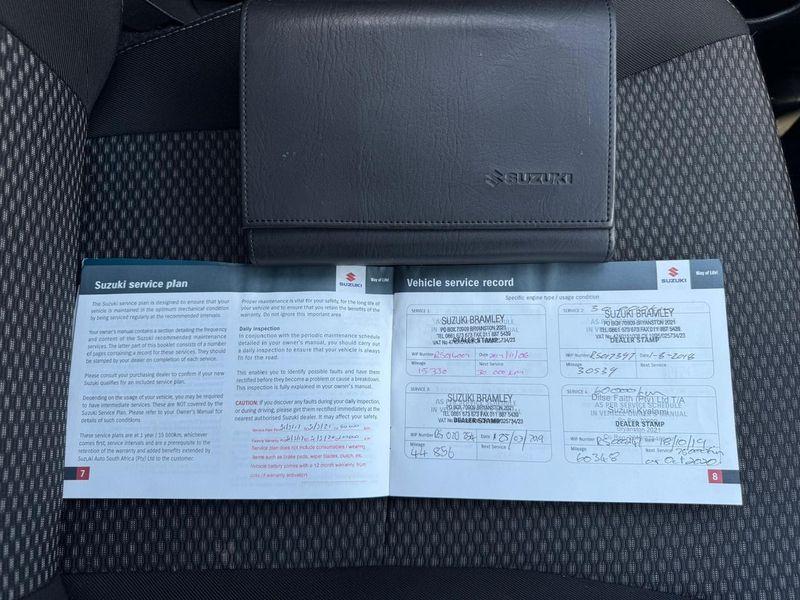 SUZUKI
Suzuki service plan
SUZUKI
Way of Life!
The Suzuki service plan is designed to ensure that your
vehicle is maintained in the optimum mechanical condition
by being serviced regularly at the recommended intervals.
Your owner's manual contains a section detailing the frequency
and content of the Suzuki recommended maintenance
services. The latter part of this booklet consists of a number
of pages containing a record for these services. They should
be stamped by your dealer on completion of each service.
Please consult your purchasing dealer to confirm if your new
Suzuki qualifies for an included service plan.
Depending on the usage of your vehicle, you may be required
to have intermediate services. These are NOT covered by the
Suzuki Service Plan. Please refer to your Owner's Manual for
details of such conditions
These service plans are at 1 year / 15 000km, whichever
comes first, service intervals and are a prerequisite to the
retention of the warranty and added benefits extended by
Suzuki Auto South Africa (Pty) Ltd to the customer.
7
Proper maintenance is vital for your safety, for the long life of
your vehicle and to ensure that you retain the benefits of the
warranty. Do not ignore this important area
Daily inspection
In conjunction with the periodic maintenance schedule
detailed in your owner's manual, you should carry out
a daily inspection to ensure that your vehicle is always
fit for the road.
This enables you to identify possible faults and have them
rectified before they become a problem or cause a breakdown.
This inspection is fully explained in your owner's manual.
CAUTION: If you discover any faults during your daily inspection,
or during driving, please get them rectified immediately at the
nearest authorised Suzuki dealer. It may affect your safety.
Service plan does not include consumables / wearing
items such as brake pads, wiper blades, clutch, etc.
Vehicle battery comes with a 12 month warranty from
Vehicle service record
SUZUKI
Way of Life!
Specific engine type / usage condition
SERVICE 1:
SUZUKI BRAMLEY
PO BOX 70909 BRYANSTON 2021
DEALER STAMP
WIP Number
Date
Mileage 15330
Next Service 30 000 km
SERVICE 2:
SUZUKI BRAMLEY
PO BOX 70909 BRYANSTON 2021
DEALER STAMP
WIP Number
Date 1-6-2018
Mileage 30529
Next Service
SERVICE 3:
SUZUKI BRAMLEY
PO BOX 70909 BRYANSTON 2021
DEALER STAMP
WIP Number
Date
Mileage 44 896
Next Service
SERVICE 4:
60000km
Dilse Faith (Pty) Ltd T/A
Suzuki Kyalami
WIP Number
Date 18/10/19
Mileage 60348
Next Service
8